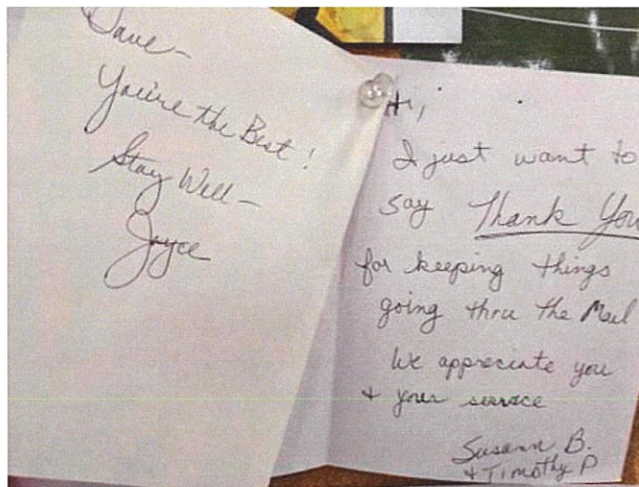 Dave-
You're the Best!
Stay Well-
Joyce
Hi,
I just want to
say Thank You
for keeping things
going thru the Mail
We appreciate you
+ your service
Susann B.
+ Timothy P